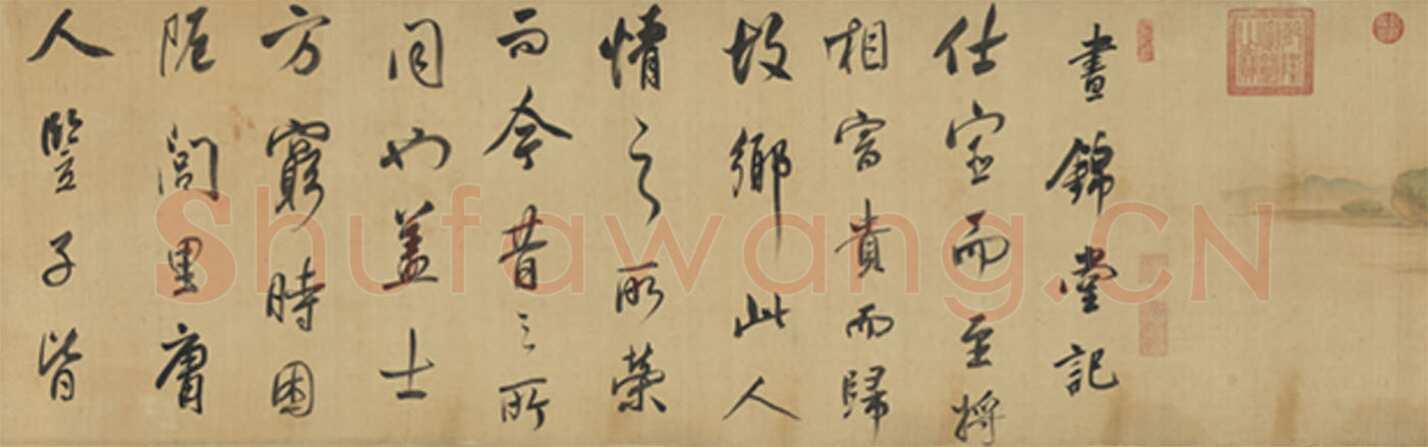 晝錦堂記
仕宦而至將
相富貴而歸
故鄉此人
情之所榮
而今昔之所
同也蓋士
方窮時困
阨閭里庸
人竪子皆
Shufawang.CN